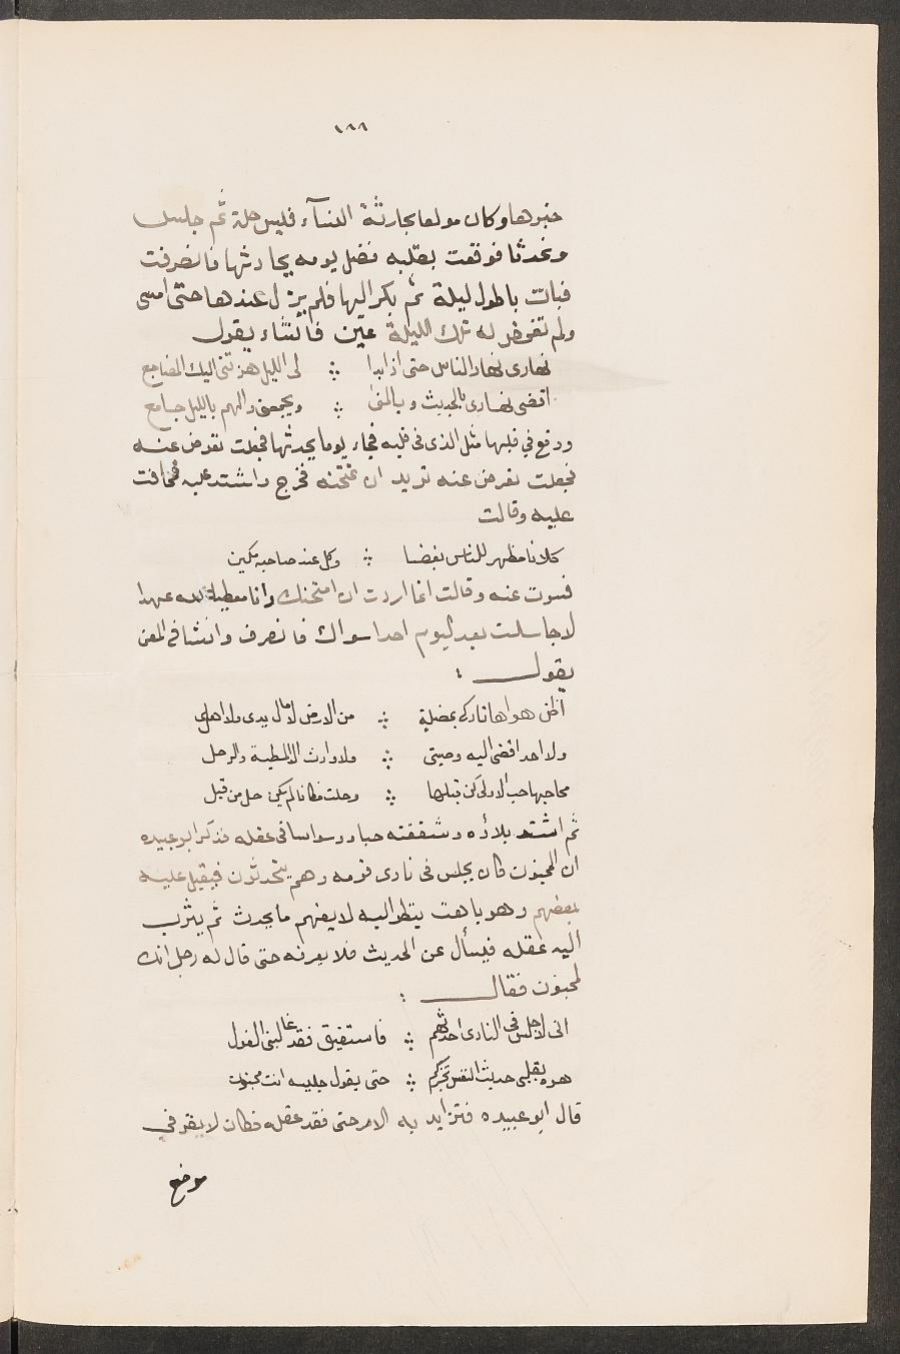 ١٨٨
خبرها وكان مولعا بحادثة النسآء فلبس حلة ثم جلس
وتحدثا فوقعت بقلبه فضل يومه يحادثها فانصرفت
فبات باطول ليلة ثم بكر اليها فلم يزل عندها حتى امسى
ولم تغمض له تلك الليلة عين فانشاء يقول
نهارى نهار الناس حتى اذا بدا ∴ لى الليل هزتنى اليك المضاجع
اقضى نهارى بالحديث وبالمنى ∴ ويجمعنى والهم بالليل جامع
ووقع في قلبها مثل الذى فى قلبه فجاء يوما يحدثها فجعلت تعرض عنه
فجعلت تعرض عنه تريد ان تمتحنه فخرج واشتد عليه فخافت
عليه وقالت
كلانا مظهر للناس بغضا ∴ وكل عند صاحبه مكين
فسرت عنه وقالت انما اردت ان امتحنك وانا معطية لله عهدا
لا جالست بعد اليوم احدا سواك فانصرف وانشا في المعن
يقول :
اظن هواها تاركى بمضلة ∴ من الارض لا مال لدى ولا اهل
ولا احد افضى اليه وصيتى ∴ ولا وارث الا المطية والرحل
محا حبها حب الاولى كن قبلها ∴ وحلت مكانا لم يكن حل من قبل
ثم اشتد بلاؤه وشغفته حبا ووسواسا فى عقله فذكر ابو عبيده
ان المجنون كان يجلس فى نادى قومه وهم يتحدثون فيقبل عليه
بعضهم وهو باهت ينظر اليه لا يفهم ما يحدث ثم يثرب
اليه عقله فيسأل عن الحديث فلا يعرفه حتى قال له رجل انك
لمجنون فقال :
انى لاجلس فى النادى احدثهم ∴ فاستفيق فقد غالبنى الغول
حتى يقول جليسه انت مجنون
قال ابو عبيده فتزايد به الامر حتى فقد عقله فكان لا يقر في
موضع